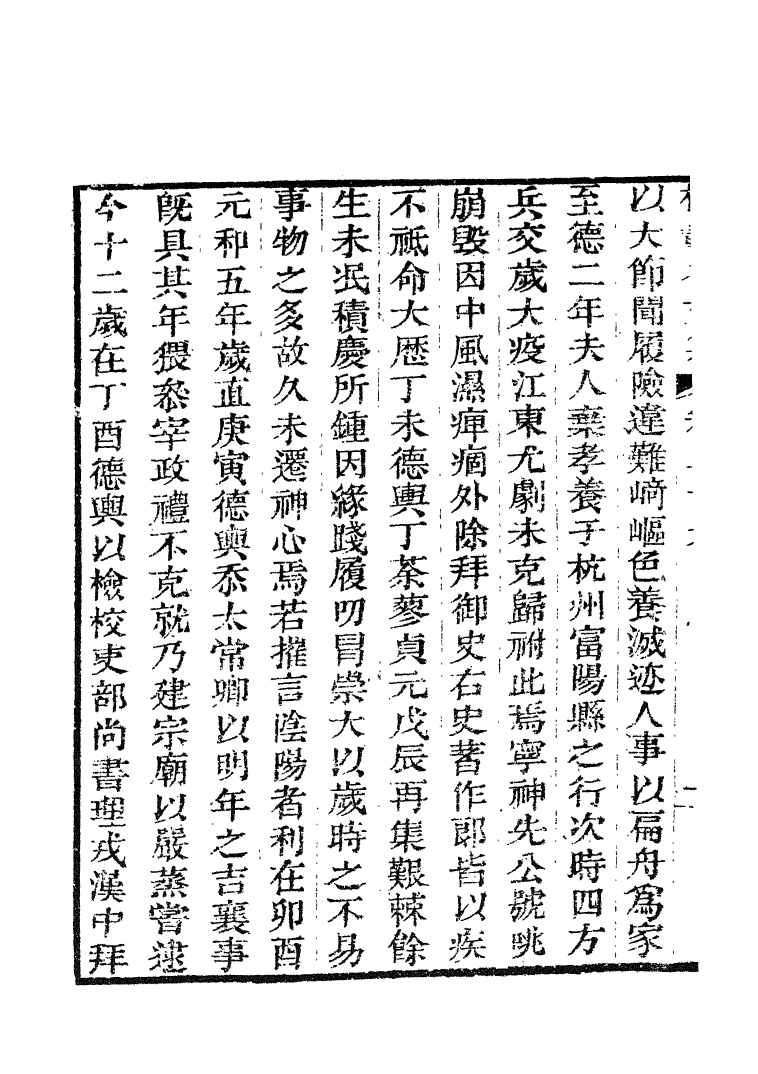 以大節聞履險違難崎嶇色養滅迹人事以扁舟爲家
至德二年夫人棄孝養于杭州富陽縣之行次時四方
兵交歲大疫江東尤劇未克歸祔此焉寧神先公號眺
崩毀因中風濕痺痼外除拜御史右史著作郎皆以疾
不祗命大歷丁未德輿丁荼蓼貞元戊辰再集艱棘餘
生未泯積慶所鍾因緣踐履叨冒崇大以歲時之不易
事物之多故久未遷神心焉若摧言陰陽者利在卯酉
元和五年歲直庚寅德輿忝太常卿以明年之吉襄事
既具其年猥叅宰政禮不克就乃建宗廟以嚴蒸嘗逮
今十二歲在丁酉德輿以檢校吏部尚書理戎漢中拜